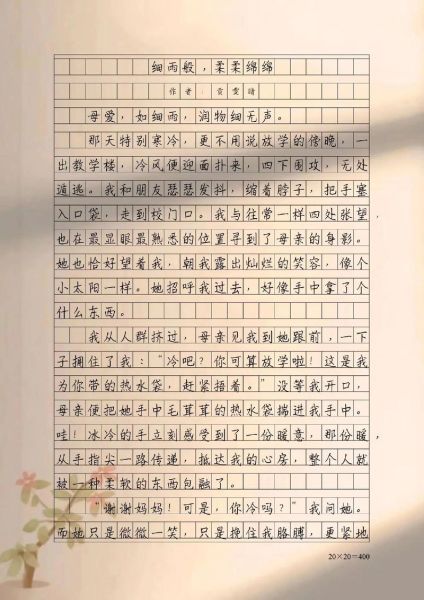 细雨般，柔柔绵绵
作者：贡雯晴
母爱，如细雨，润物细无声。
那天特别寒冷，更不用说放学的傍晚，一
出教学楼，冷风便迎面扑来，四下围攻，无处
遁逃。我和朋友瑟瑟发抖，缩着脖子，把手塞
入口袋，走到校门口。我与往常一样四处张望，
也在最显眼最熟悉的位置寻到了母亲的身影。
她也恰好望着我，朝我露出灿烂的笑容，像个
小太阳一样。她招呼我过去，好像手中拿了个
什么东西。
我从人群挤过，母亲见我到她跟前，一下
子拥住了我：“冷吧？你可算放学啦！这是我
为你带的热水袋，赶紧捂着。”没等我开口，
母亲便把她手中毛茸茸的热水袋揣进我手中。
哇！冰冷的手立刻感受到了一份暖意，那份暖，
从手指尖一路传递，抵达我的心房，整个人就
被一种柔软的东西包融了。
“谢谢妈妈！可是，你冷吗？”我问她。
而她只是微微一笑，只是挽住我胳膊，更紧地
20×20=400